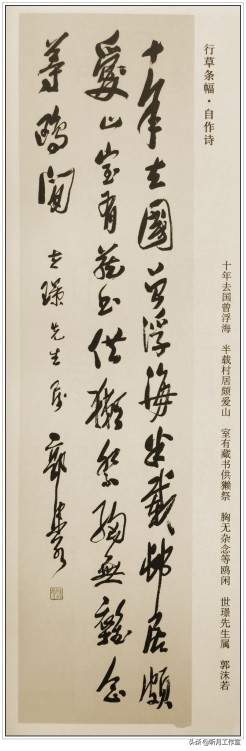 行草条幅·自作诗
十年去国曾浮海 半载村居颇爱山 室有藏书供獭祭 胸无杂念等鸥闲 世璟先生属 郭沫若
十年去國曾浮海半載村居頗
愛山室有藏书供獺祭胸無雜念
等鷗閒 世璟先生属 郭沫若
头条@昕月工作室